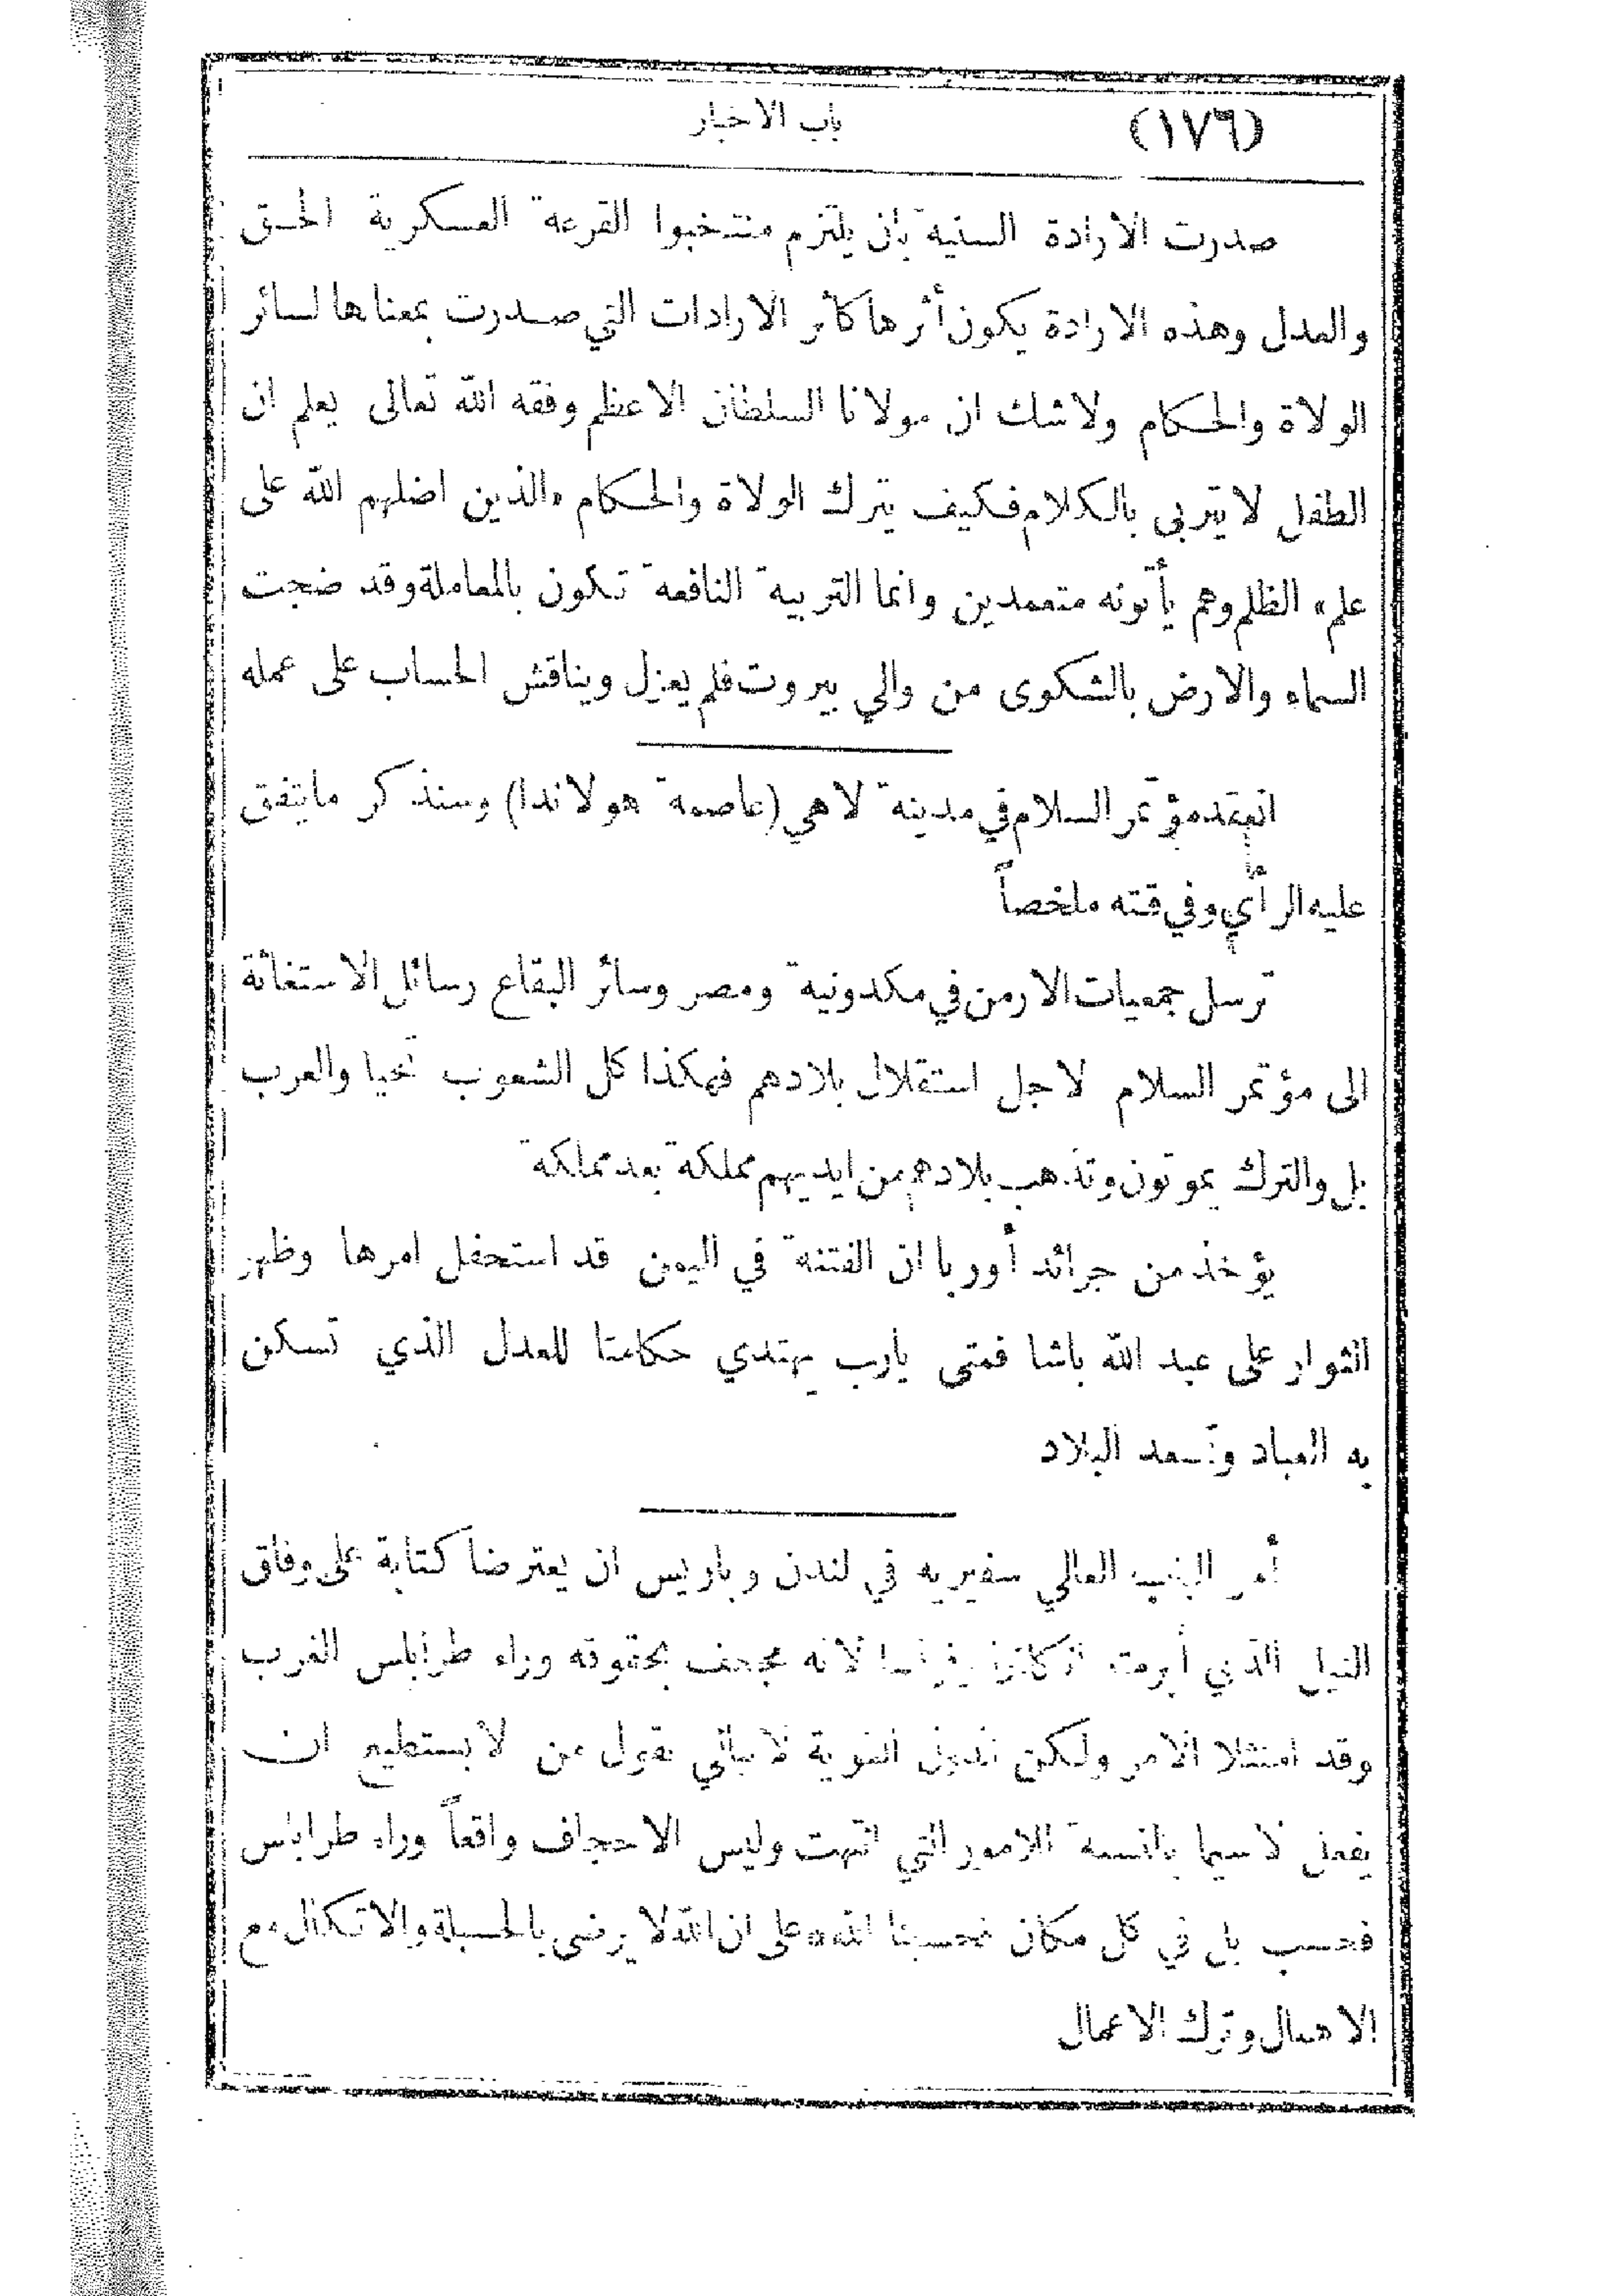 (١٧٦) باب الاخبار
صدرت الارادة السنية بان يلتزم منتخبوا القرعة العسكرية الحق
والعدل وهذه الارادة يكون أثرها كأثر الارادات التي صدرت بمعناها لسائر
الولاة والحكام ولا شك ان مولانا السلطان الاعظم وفقه الله تعالى يعلم ان
الطفل لا يتربى بالكلام فكيف يترك الولاة والحكام «الذين اضلهم الله على
علم» الظلم وهم يأتونه متعمدين وانما التربية النافعة تكون بالمعاملة وقد ضجت
السماء والارض بالشكوى من والي بيروت فلم يعزل ويناقش الحساب على عمله
انعقد مؤتمر السلام في مدينة لاهي (عاصمة هولاندا) وسنذكر ما يتفق
عليه الرأي وفي قته ملخصاً
ترسل جمعيات الارمن في مكدونية ومصر وسائر البقاع رسائل الاستغاثة
الى مؤتمر السلام لاجل استقلال بلادهم فهكذا كل الشعوب تحيا والعرب
بل والترك يموتون وتذهب بلادهم من ايديهم مملكة بعد مملكة
يؤخذ من جرائد أوربا ان الفتنة في اليمن قد استحفل امرها وظهر
الثوار على عبد الله باشا فمتى يارب يهتدي حكامنا للعدل الذي تسكن
به العباد وتسعد البلاد
أمر الباب العالي سفيريه في لندن وباريس ان يعترضا كتابة على وفاق
النيل الذي أبرمته انكلترا وفرنسا لانه مجحف بحقوقه وراء طرابلس الغرب
وقد امتثلا الامر ولكن الدول القوية لا تبالي بقول من لا يستطيع ان
يفعل لا سيما بالنسبة للامور التي انتهت وليس الاحجاف واقعاً وراء طرابلس
فحسب بل في كل مكان فحسبنا الله، على ان الله لا يرضى بالحسبلة والاتكال مع
الاهمال وترك الاعمال